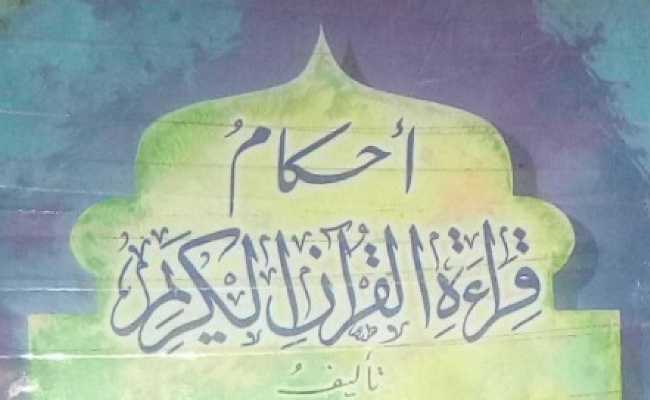 أحكامُ
قِرَاءَةِ القُرْآنِ الكَرِيمِ
تأليفُ